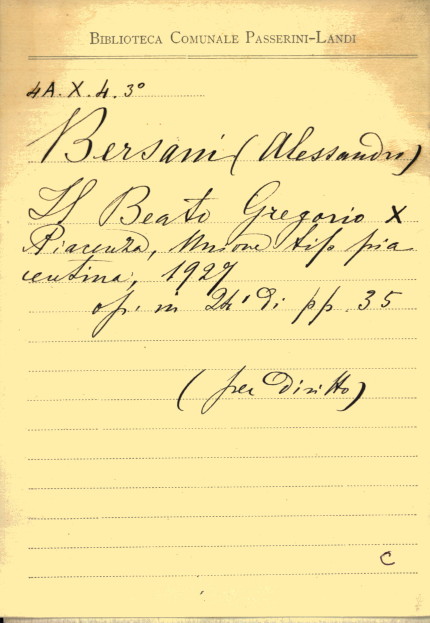 BIBLIOTECA COMUNALE PASSERINI-LANDI
4A.X.4.3º
Bersani (Alessandro)
Il Beato Gregorio X
Piacenza, Unione tip. pia
centina, 1927
op. in 24º di pp. 35
(per diritto)
C